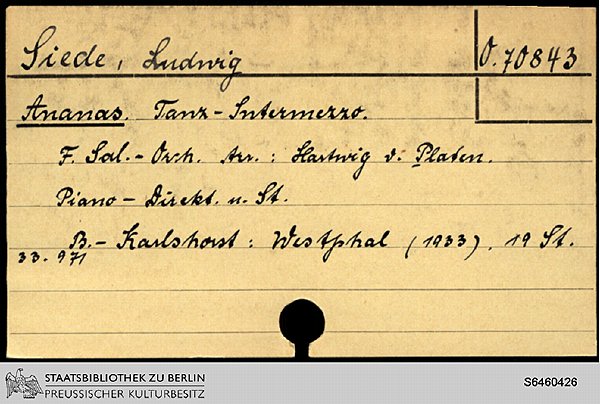 Siede, Ludwig
O. 70843
Ananas. Tanz-Intermezzo.
F. Sal.-Orch. arr.: Hartwig v. Platen.
Piano-Direkt. u. St.
B.-Karlshorst: Westphal (1933). 19 St.
33.971
STAATSBIBLIOTHEK ZU BERLIN
PREUSSISCHER KULTURBESITZ
S6460426